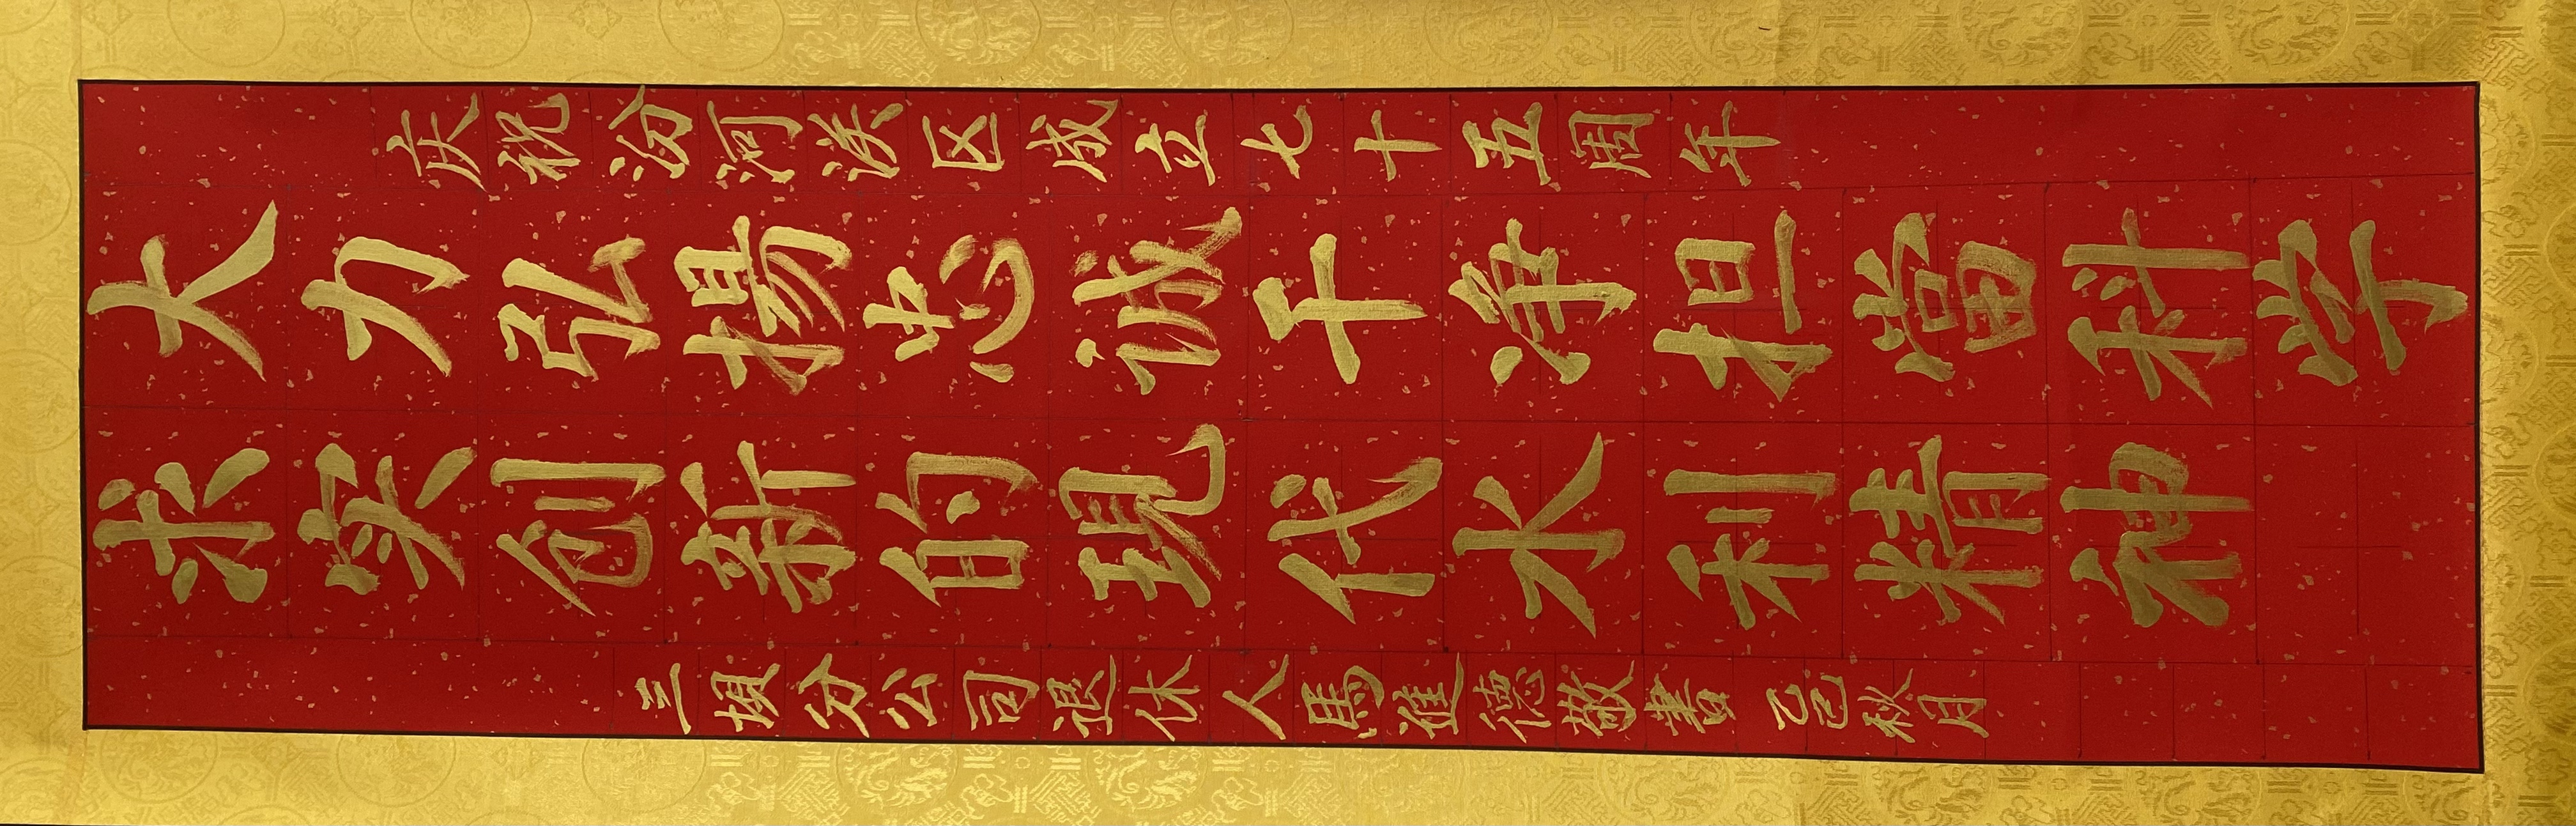 庆祝汾河灌区成立七十五周年
大力弘揚忠诚干净担當科学
求实创新的现代水利精神
三垻分公司退休人馬淮德敬書 乙巳秋月